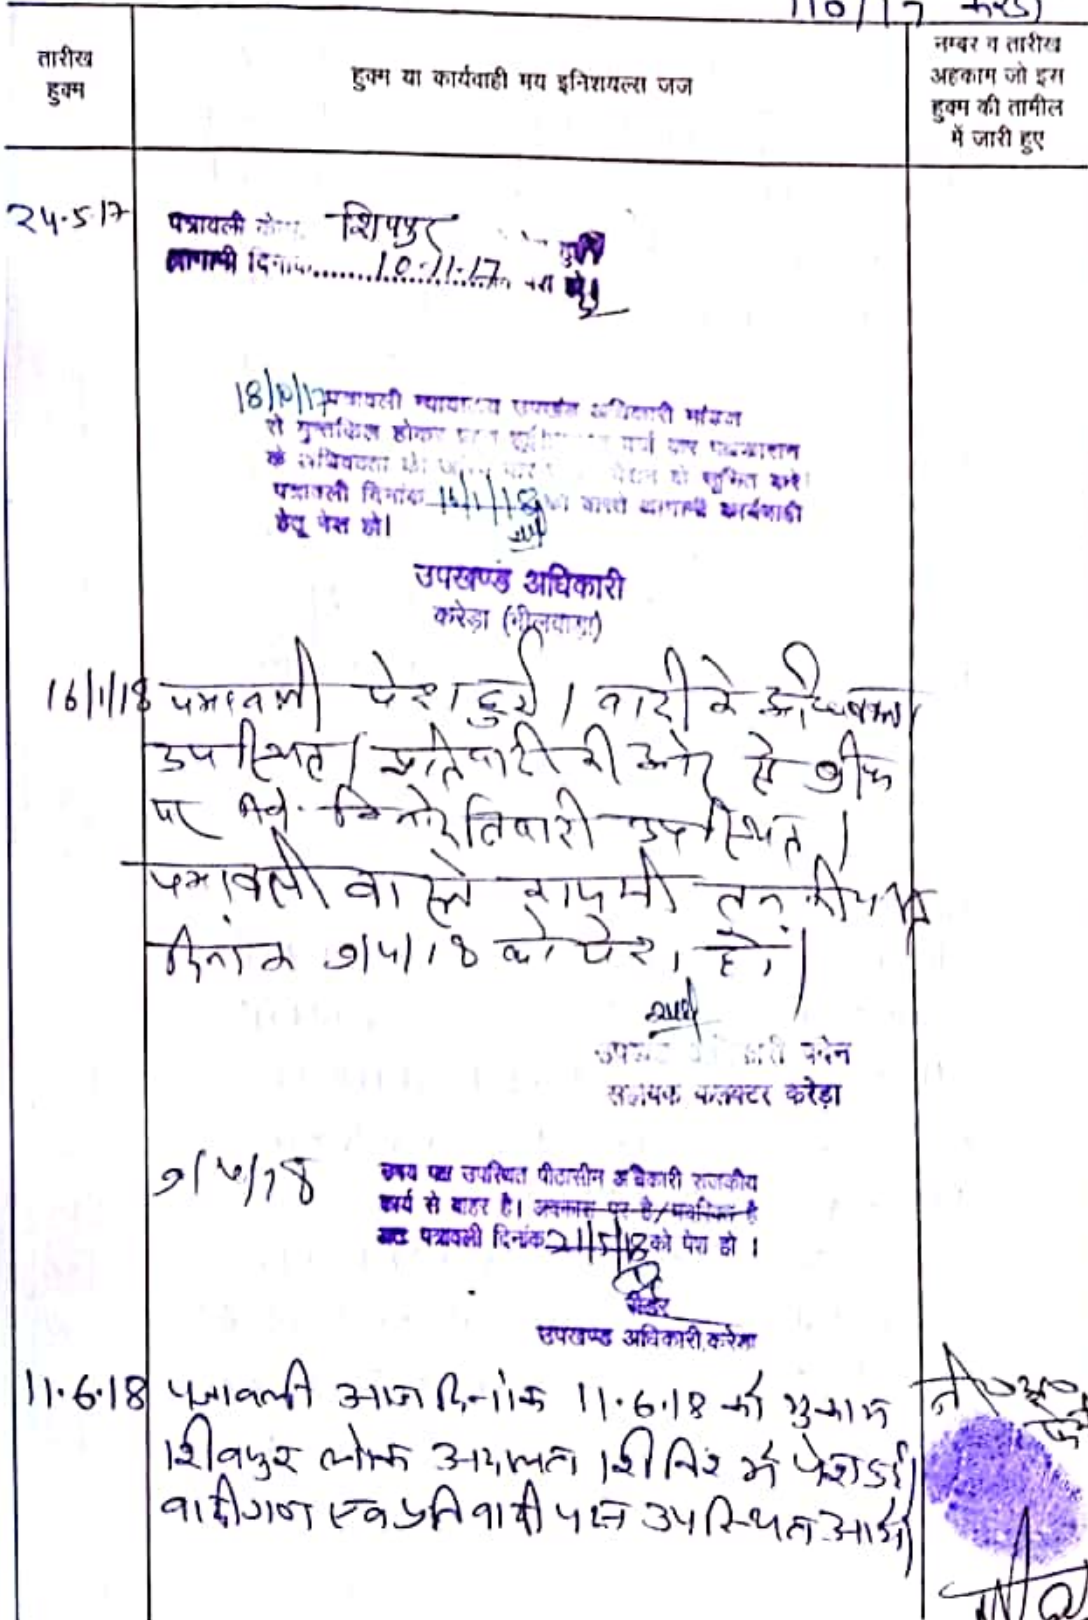 110/17
तारीख
हुक्म
हुक्म या कार्यवाही मय इनिशयल्स जज
नम्बर व तारीख
अहकाम जो इस
हुक्म की तामील
में जारी हुए
24.5.17
पत्रावली शिवपुर
आगामी दिनांक 10.11.17 पेश हो।
18/10/17 पत्रावली न्यायालय उपखंड अधिकारी मांडल
से मुन्तकिल होकर दर्ज कर पक्षकारान
के अधिवक्ता को सूचित करे।
पत्रावली दिनांक 16/1/18 को वास्ते आगामी कार्यवाही
हेतू पेश हो।
उपखण्ड अधिकारी
करेड़ा (भीलवाड़ा)
16/1/18 पत्रावली पेश हुई। वादी के अधिवक्ता
उपस्थित। प्रतिवादी की ओर से
पर तिवारी उपस्थित।
पत्रावली वास्ते कायमी तनकीयात
दिनांक 9/4/18 को पेश हो।
उपखण्ड अधिकारी पदेन
सहायक कलक्टर करेड़ा
9/4/18
उभय पक्ष उपस्थित पीठासीन अधिकारी राजकीय
कार्य से बाहर है। अवकाश पर है/
अतः पत्रावली दिनांक 21/5/18 को पेश हो।
रीडर
उपखण्ड अधिकारी, करेड़ा
11.6.18 पत्रावली आज दिनांक 11.6.18 को मुकाम
शिवपुर लोक अदालत शिविर में पेश हुई।
वादीगण एवं प्रतिवादी पक्ष उपस्थित आये।